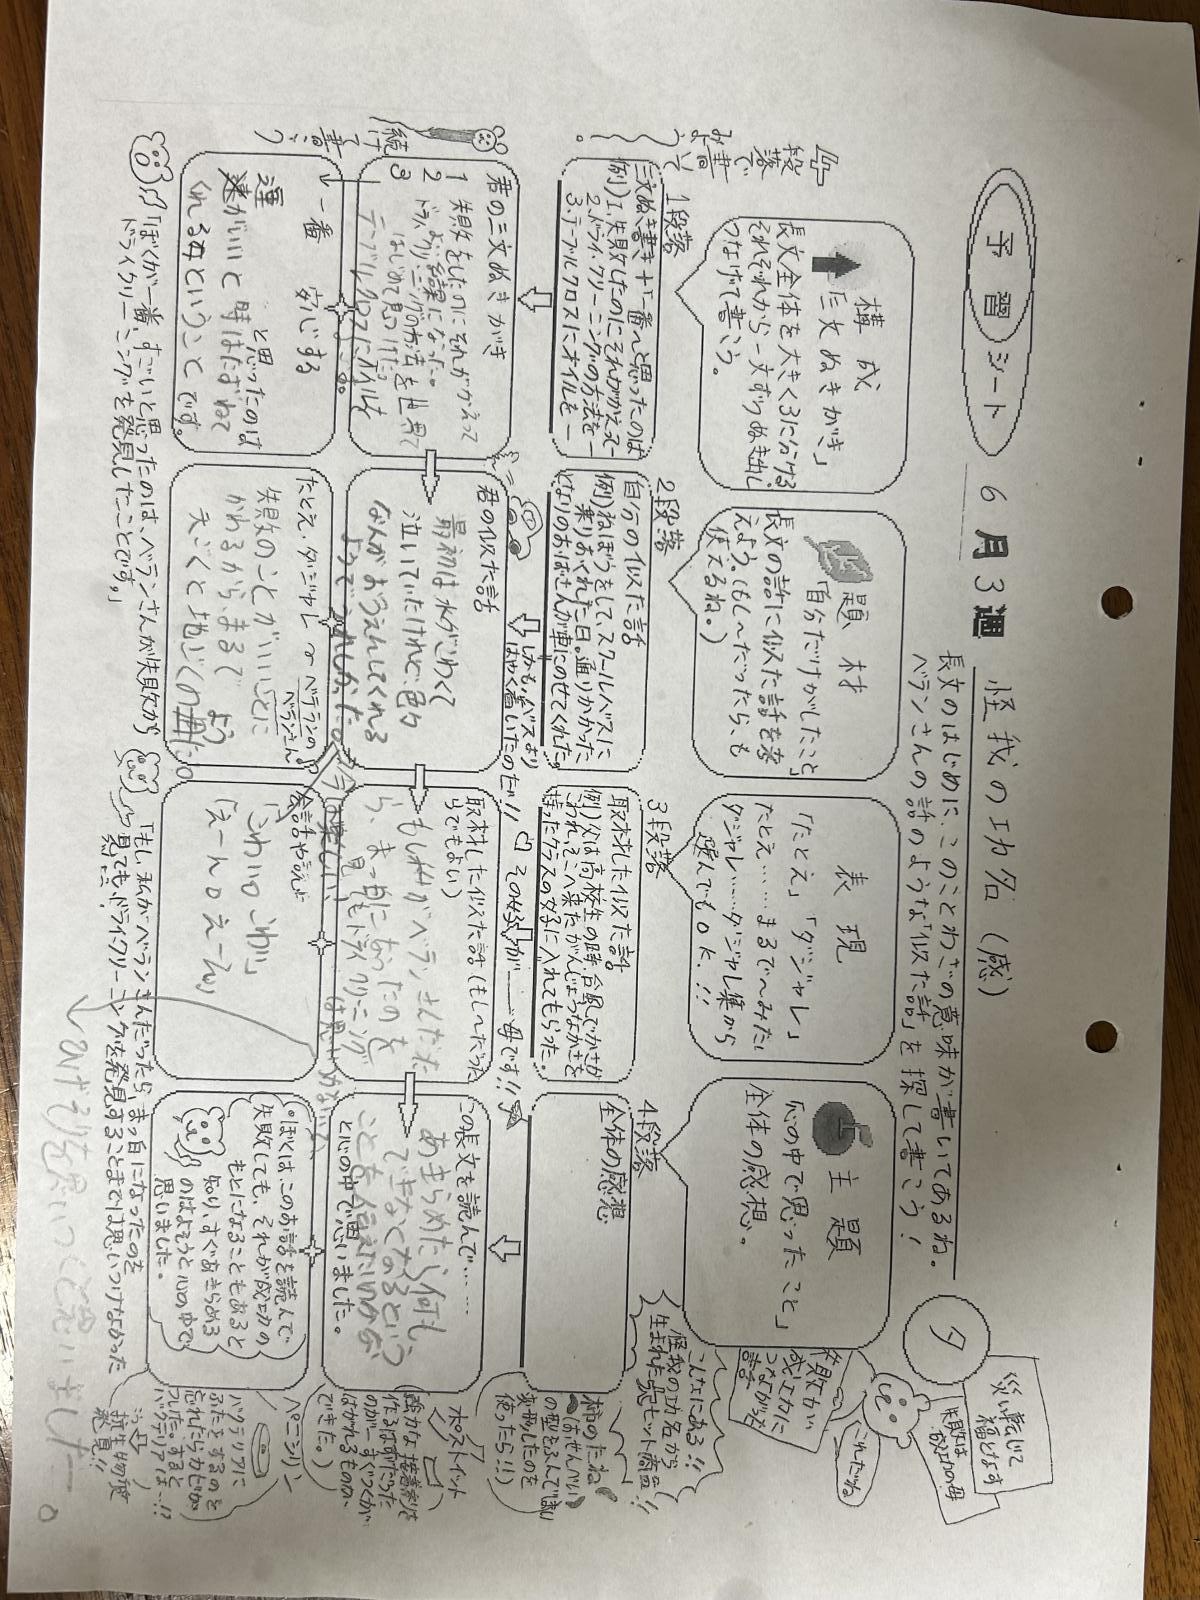 予習シート 6月3週 怪我の功名（感）
長文のはじめに、このことわざの意味が書いてあるね。
ベランさんの話のような「似た話」を探して書こう！
タ
災い転じて
福となす
失敗は
成功の母
これだね
失敗が
成功に
つながった
構成
「三文ぬきがき」
長文全体を大きく3に分ける。
それぞれから一文ずつぬき出し
つなげて書こう。
題材
「自分だけがしたこと」
長文の話に似た話を考
えよう。(もし〜だったら、も
使えるね。)
表現
「たとえ」「ダジャレ」
たとえ……まるで〜みたい
ダジャレ……ダジャレ集から
選んでもOK!!
主題
「心の中で思ったこと」
全体の感想。
こんなにある!!
怪我の功名から
生まれた大ヒット商品!!
各段落で
書いて
みよう。
1段落
三文ぬき書き＋「一番〜と思ったのは
例）1.失敗したのにそれがかえって〜
2.ドライ・クリーニングの方法を〜
3.テーブルクロスにオイルを〜
2段落
自分の似た話
例）ねぼうをして、スクールバスに
乗りおくれた日。通りかかった
となりのおばさんが車にのせてくれた。
しかも、バスより
はやく着いたのだ!!
3段落
取材した似た話
例）父は高校生の時、台風でかさが
こわれる。そこへ来た、がんじょうなかさを
持ったクラスの女子に入れてもらった。
その女子が――母です!!
4段落
全体の感想
柿のたね
(おせんべい
の型をふんでしまい
変形したものを
使ったら!!)
続けて書こう
君の三文ぬきがき
1 失敗をしたのにそれがかえって
よい結果になった。
2 ドライクリーニングの方法を世界で
はじめて見つけた。
3 テーブルクロスにオイルを
こぼす。
君の似た話
最初は水がこわくて
泣いていたけれど、色々
な人がおうえんしてくれる
ようでうれしかった。
今は楽しい
取材した似た話（もし〜だった
らでもよい）
もし神がベランさんだった
ら、まっ白になったのを
見てもドライクリーニング
は思いつかない
この長文を読んで……
あきらめたら何も
できなくなるという
ことを伝えたいのかな
と心の中で思いました。
ポストイット
(強力な接着剤を
作るはずだったら
のが…すぐつくが
はがれるものが
できた。)
一番 安心する
と思ったのは
運がいいと時はたばねて
くれる母ということです。
たとえ・ダジャレ or ベテランの
ベランさん
失敗のことがいいことに
かわるから、まるで
天ごくと地ごくの
ようだ。
会話や説よ
「こわい。こわい」
「えーん。えーん」
・ぼくはこのお話を読んで
失敗しても、それが成功の
もとになることもあると
知り、すぐあきらめる
のはよそうと心の中で
思いました。
ペニシリン
バクテリアに
ふたをするのを
忘れたらカビが
つした。すると
バクテリアは…!!
抗生物質
発見!!
「ぼくが一番、すごいと思ったのは、ベランさんが失敗から
ドライクリーニングを発見したことです。」
「もし、私がベランさんだったら、まっ白になったのを
見ても、ドライクリーニングを発見することまでは思いつけなかった